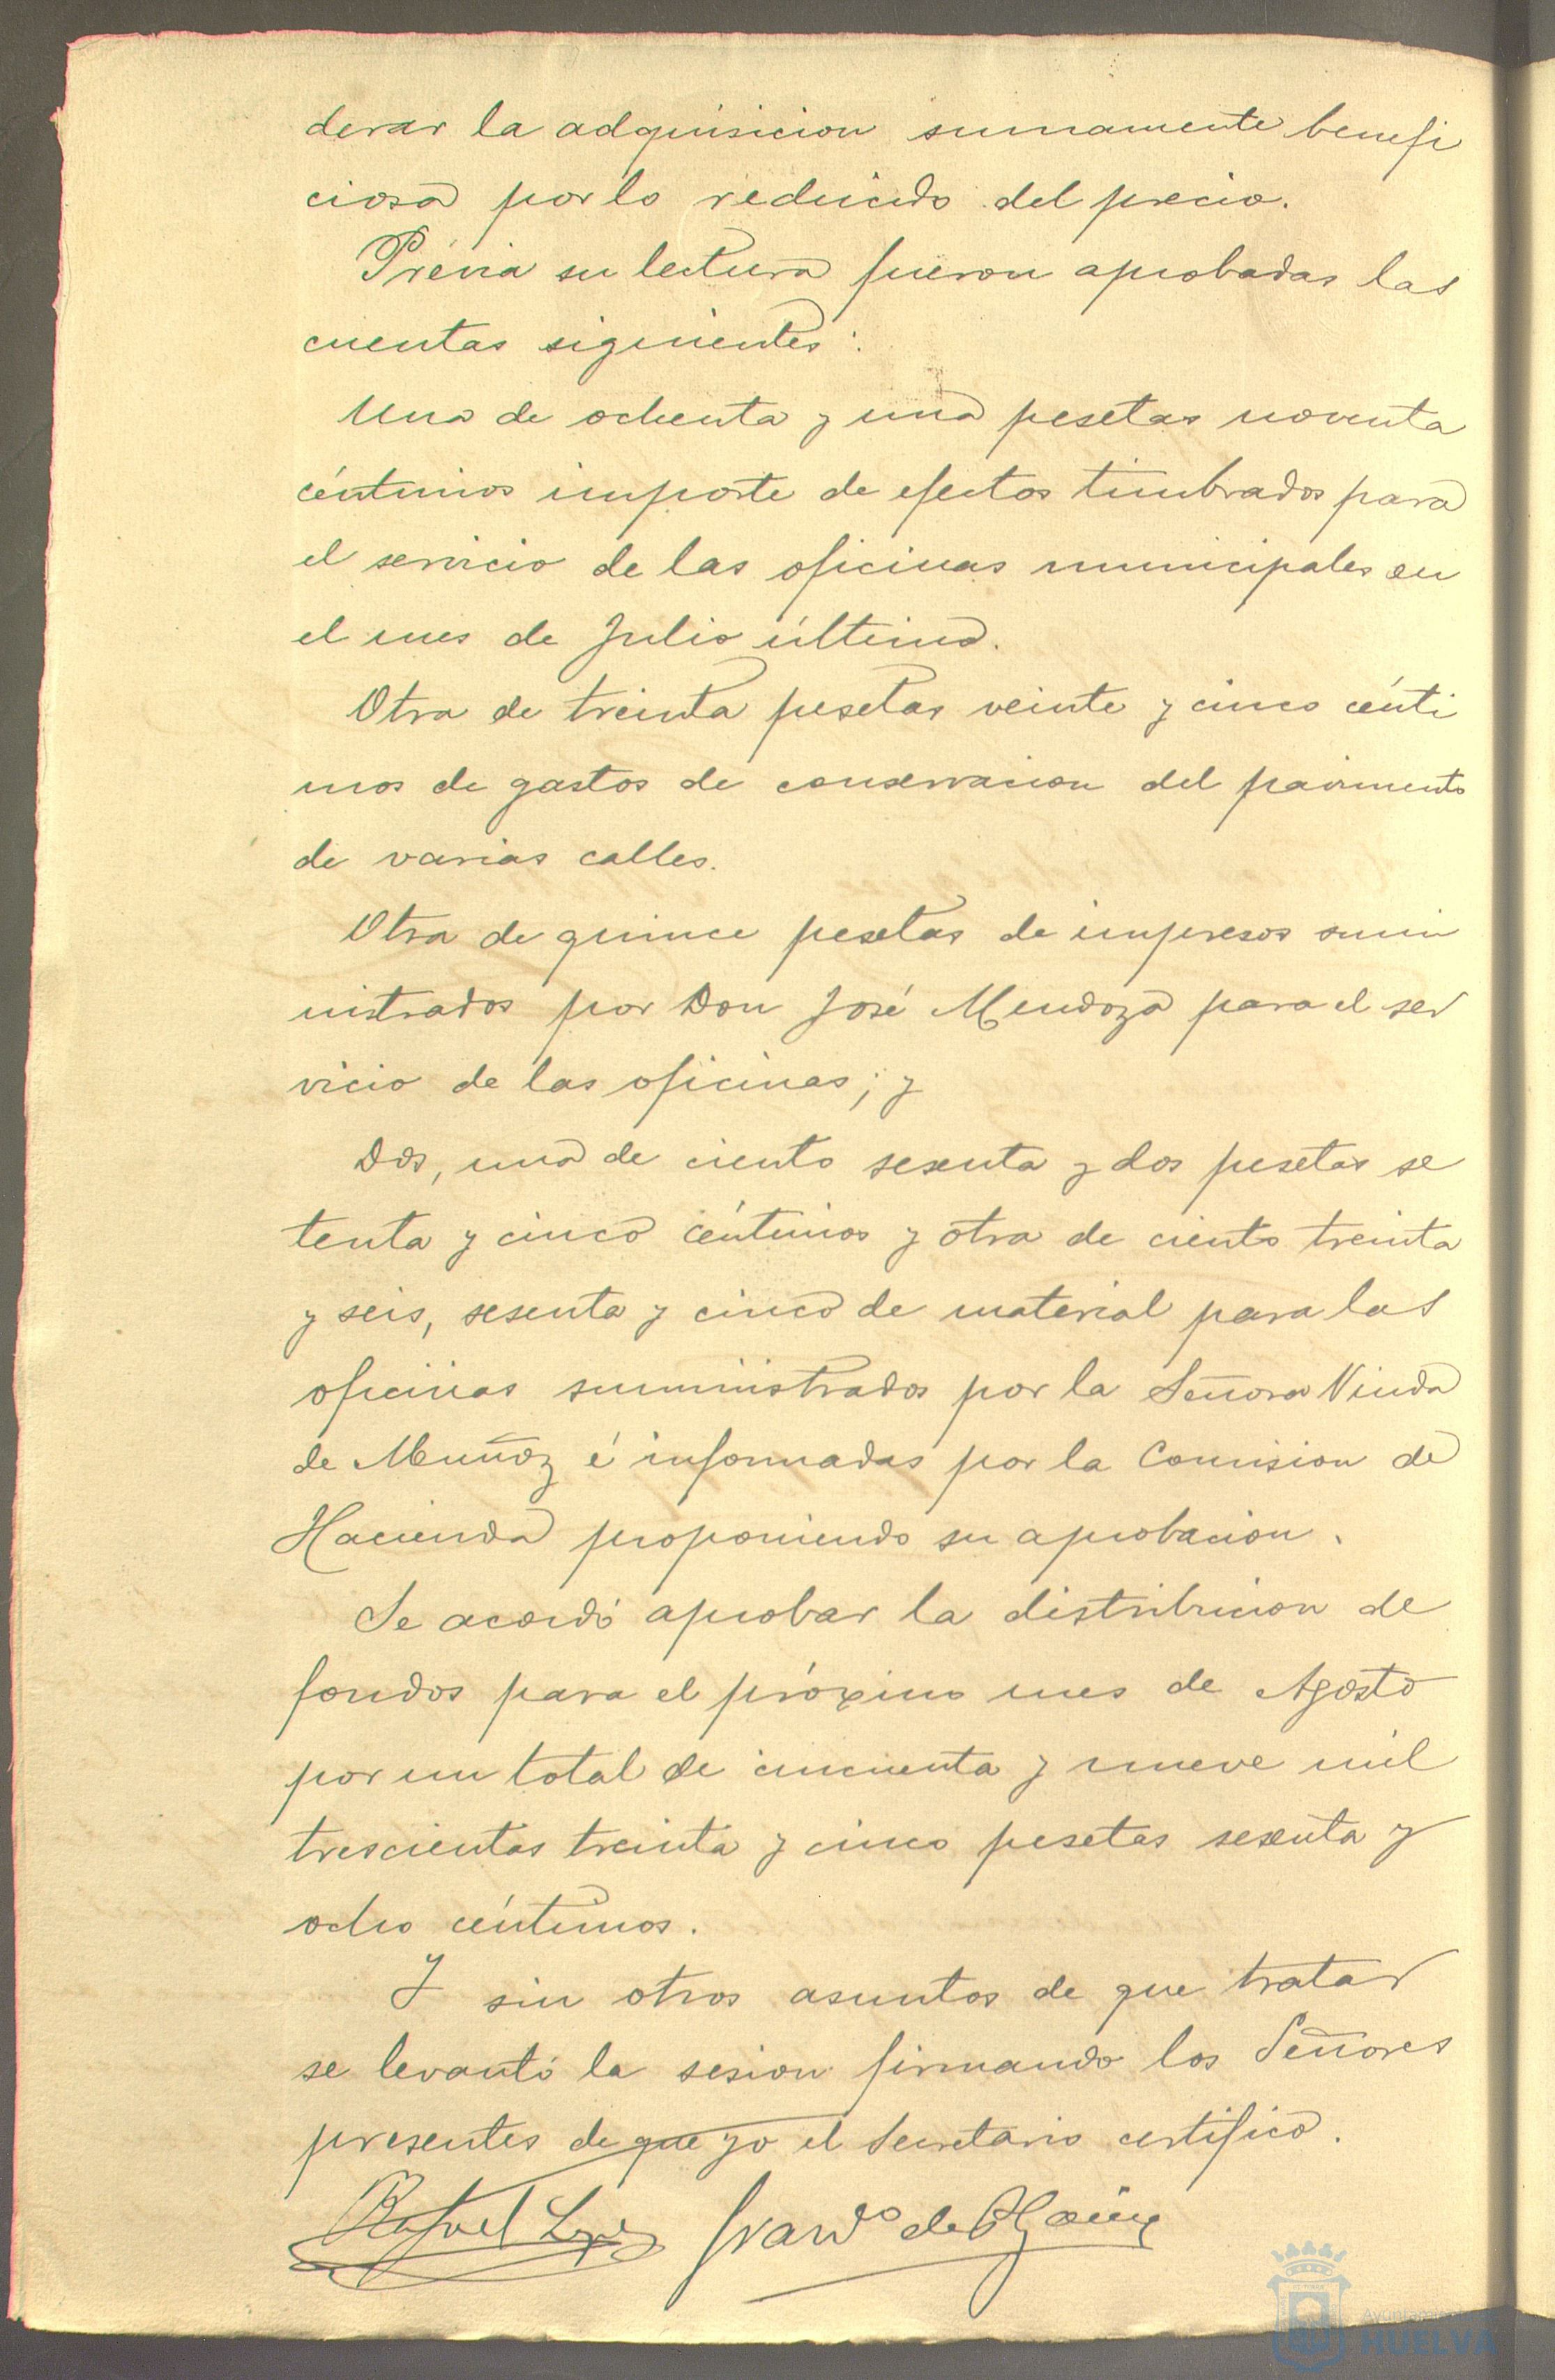 derar la adquisicion sumamente benefi
ciosa por lo reducido del precio.
Prévia su lectura fueron aprobadas las
cuentas siguientes:
Una de ochenta y una pesetas noventa
céntimos importe de efectos timbrados para
el servicio de las oficinas municipales en
el mes de Julio último.
Otra de treinta pesetas veinte y cinco cénti
mos de gastos de conservacion del pavimento
de varias calles.
Otra de quince pesetas de impresos sumi
nistrados por Don José Mendoza para el ser
vicio de las oficinas; y
Dos, una de ciento sesenta y dos pesetas se
tenta y cinco céntimos y otra de ciento treinta
y seis, sesenta y cinco de material para las
oficinas suministrados por la Señora Viuda
de Muñoz é informadas por la Comision de
Hacienda proponiendo su aprobacion.
Se acordó aprobar la distribucion de
fondos para el próximo mes de Agosto
por un total de cincuenta y nueve mil
trescientas treinta y cinco pesetas sesenta y
ocho céntimos.
Y sin otros asuntos de que tratar
se levantó la sesion firmando los Señores
presentes de que yo el Secretario certifico.
Rafael Lopez de
HUELVA